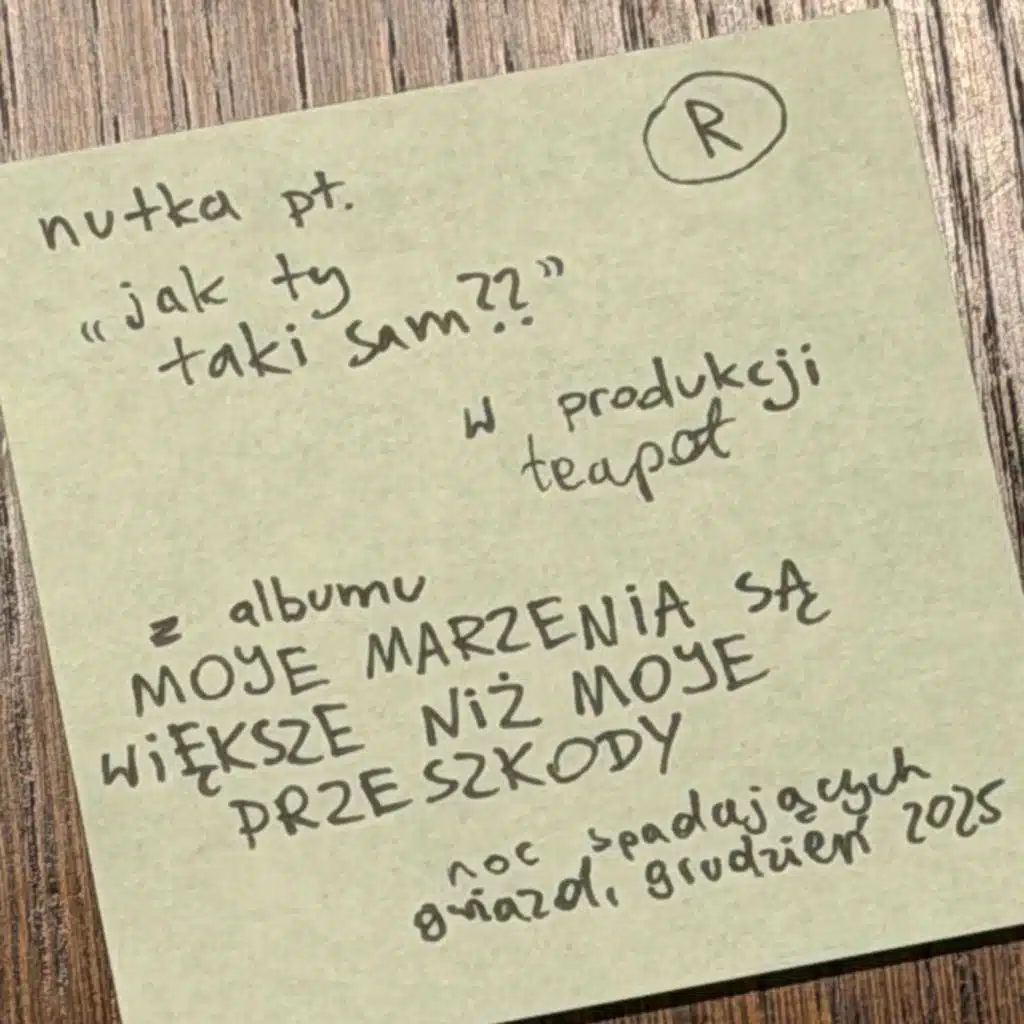 R
nutka pt.
„jak ty
taki sam??”
w produkcji
teapot
z albumu
MOJE MARZENiA SĄ
WiĘKSZE NiŻ MOJE
PRZESZKODY
noc spadających
gwiazd, grudzień 2025